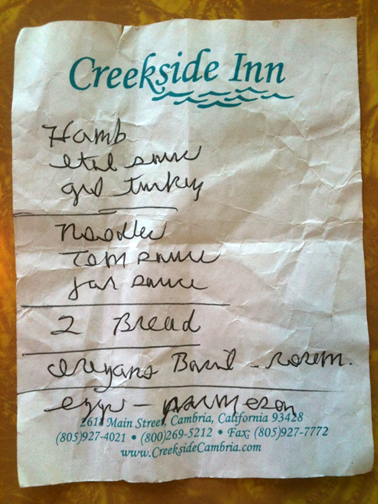 Creekside Inn
Hamb
ital sauce
grd turkey
noodles
Tom sauce
jar sauce
2 Bread
oregano Basil - rosem.
eggs - parmeson
2618 Main Street, Cambria, California 93428
(805)927-4021 • (800)269-5212 • Fax: (805)927-7772
www.CreeksideCambria.com